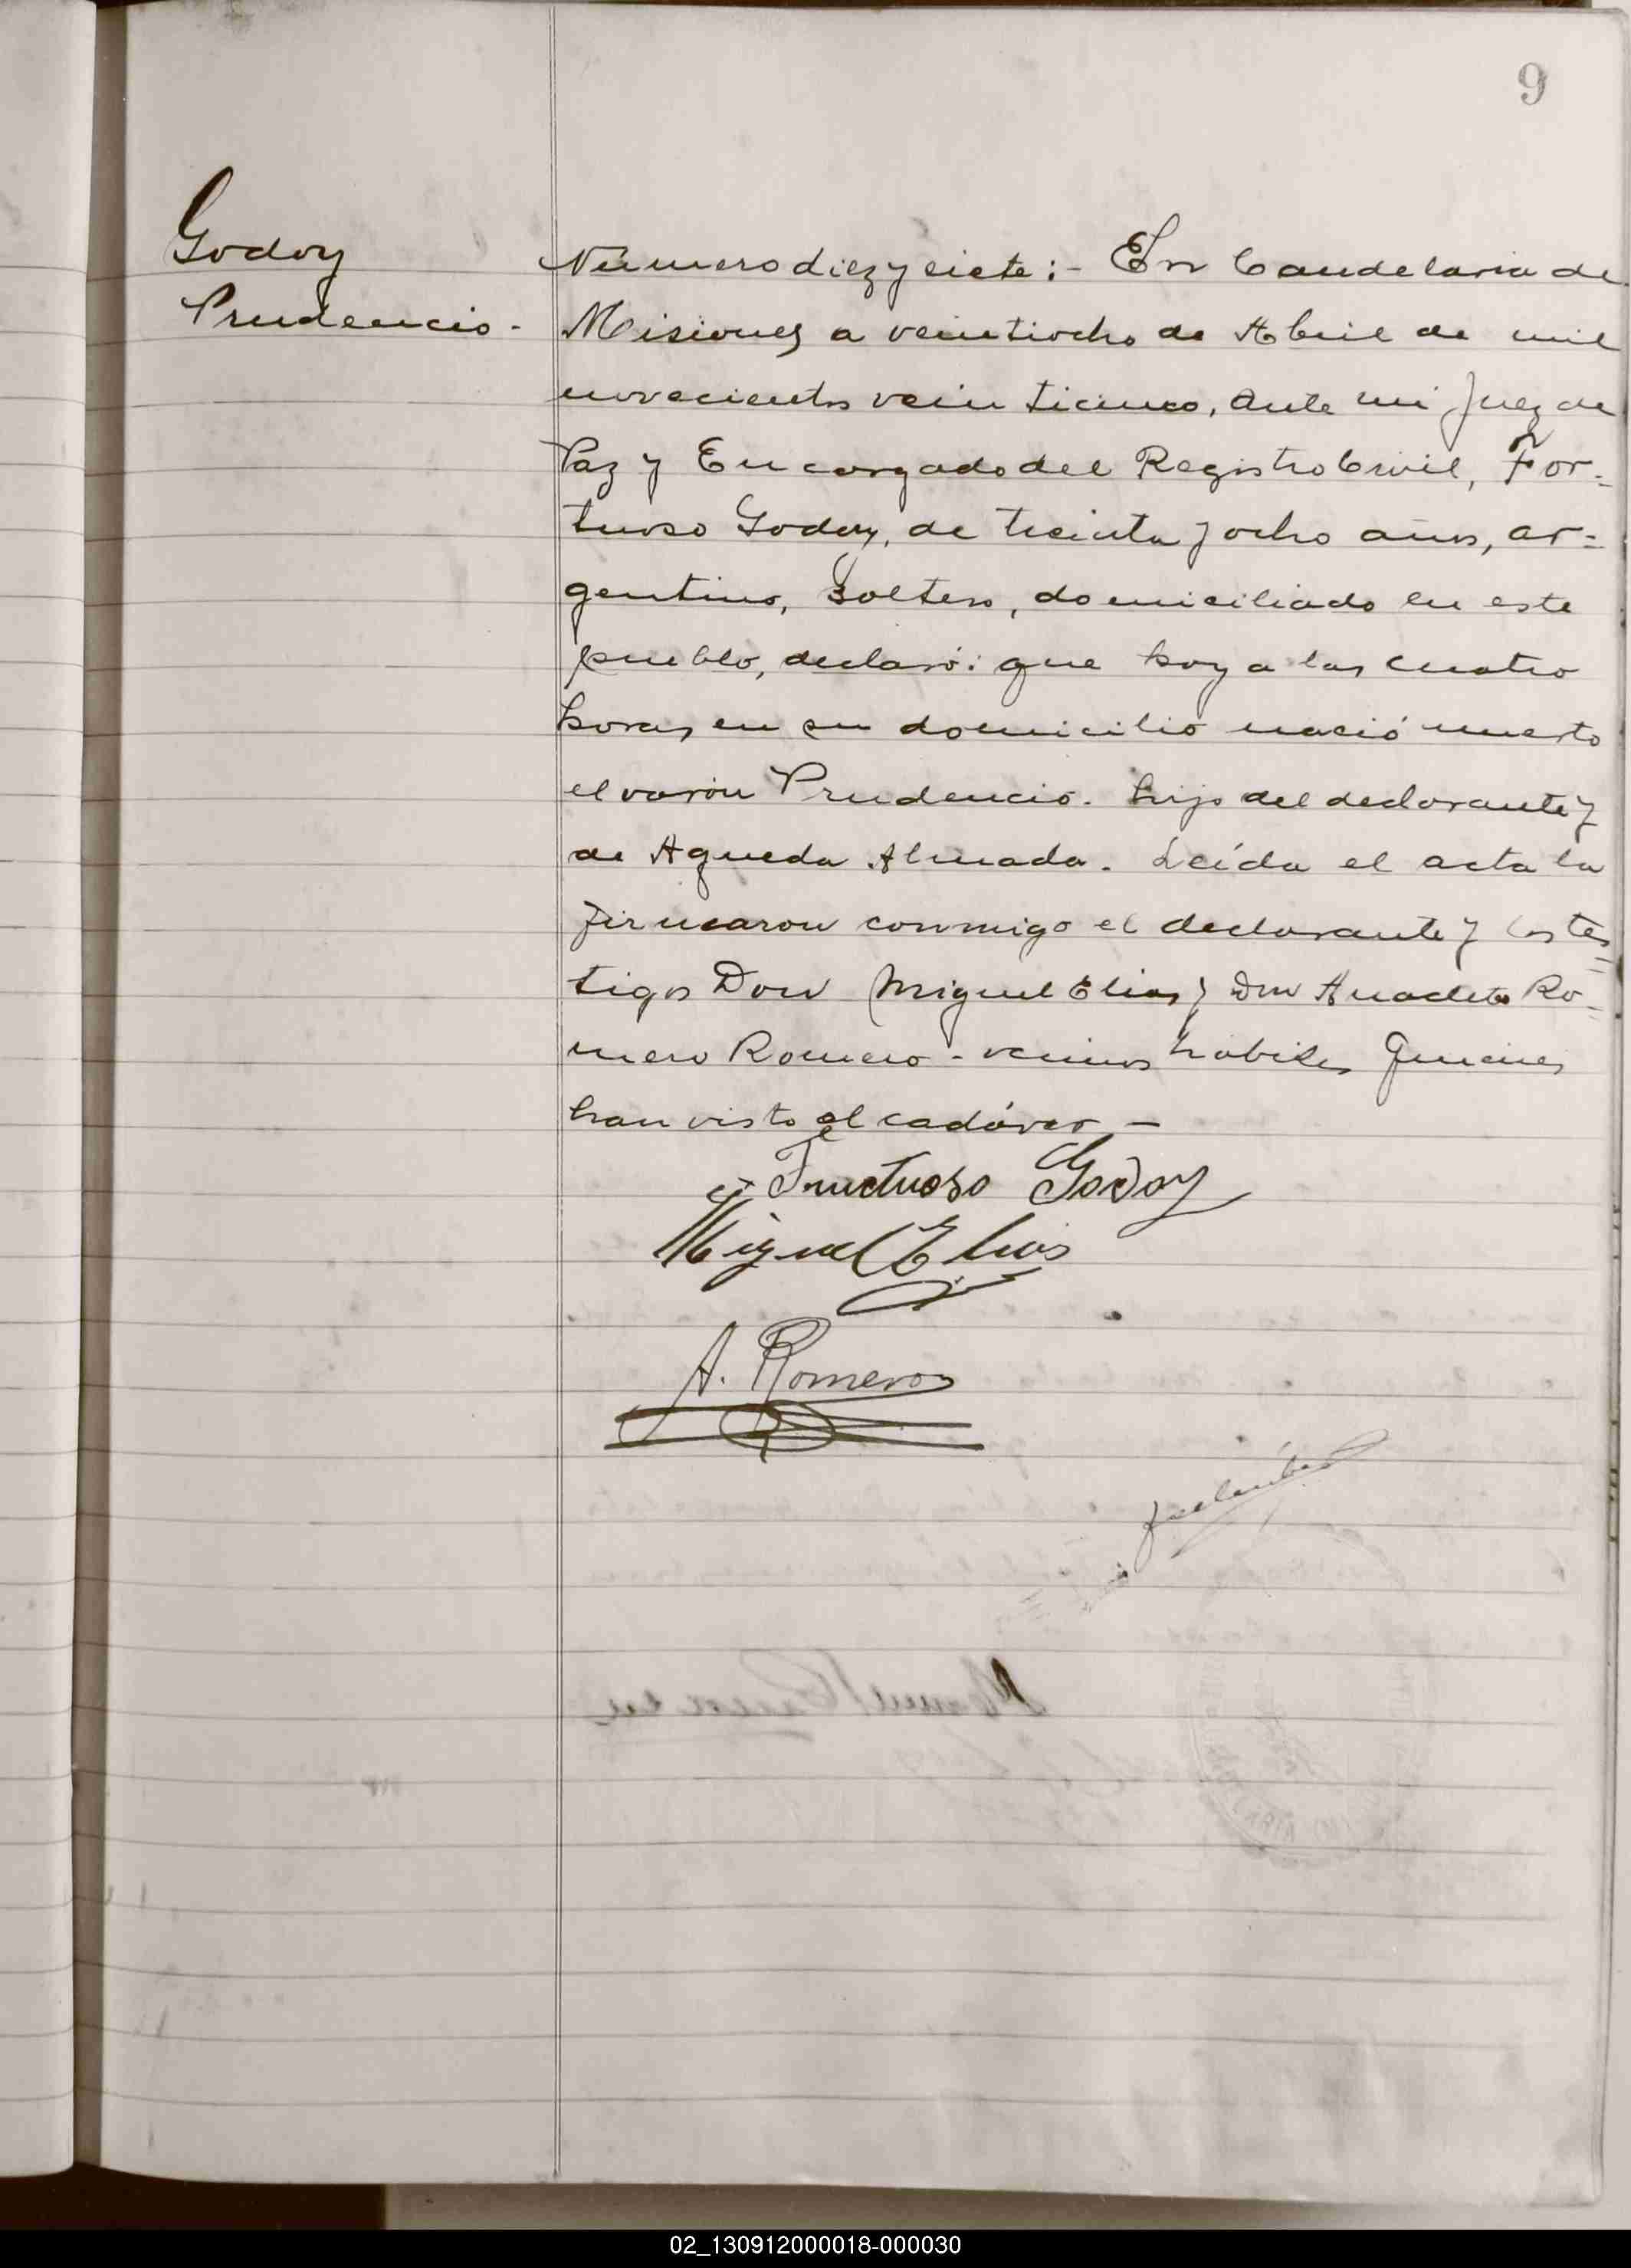 9
Godoy
Prudencio.
Número diez y siete:- En Candelaria de
Misiones a veintiocho de Abril de mil
novecientos veinticinco, ante mi Juez de
Paz y Encargado del Registro Civil, For=
tuoso Godoy, de treinta y ocho años, ar=
gentino, soltero, domiciliado en este
pueblo, declaró: que hoy a las cuatro
horas en su domicilio nació muerto
el varón Prudencio. hijo del declarante y
de Agueda Almada. Leída el acta la
firmaron conmigo el declarante y los tes=
tigos Don Miguel Elias y Don Anacleto Ro=
mero Romero - vecinos habiles quienes
han visto el cadáver -
Fructuoso Godoy
Miguel Elias
A. Romero
02_130912000018-000030